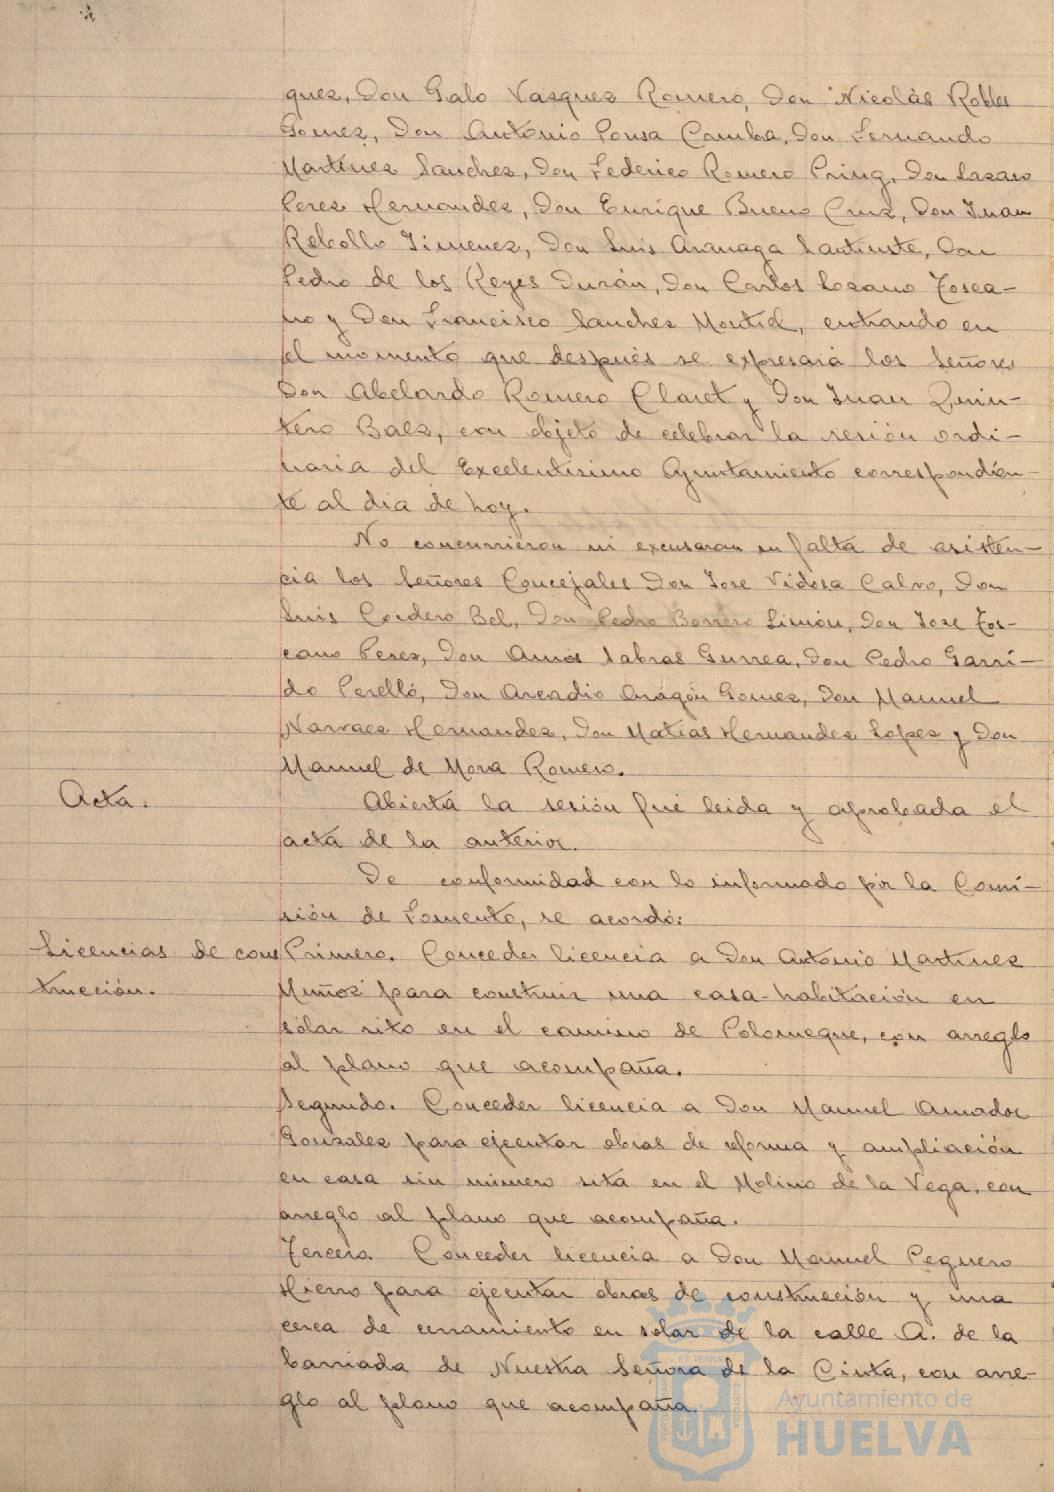 quez, Don Galo Vazquez Romero, Don Nicolás Robles
Gomez, Don Antonio Ponsa Camba, Don Fernando
Martínez Sanchez, Don Federico Romero Pring, Don Lazaro
Perez Hernandez, Don Enrique Bueno Cruz, Don Juan
Rebollo Jimenez, Don Luis Aranaga Santiuste, Don
Pedro de los Reyes Durán, Don Carlos Lozano Tosca-
no y Don Francisco Sanchez Montiel, entrando en
el momento que después se expresará los Señores
Don Abelardo Romero Claret y Don Juan Quin-
tero Baez, con objeto de celebrar la sesión ordi-
naria del Excelentísimo Ayuntamiento correspondien-
te al dia de hoy.
No concurrieron ni excusaron su falta de asisten-
cia los Señores Concejales Don Jose Vidosa Calvo, Don
Luis Cordero Bel, Don Pedro Borrero Limón, Don Jose Tos-
cano Perez, Don Amos Sabras Gurrea, Don Pedro Garri-
do Perelló, Don Arcadio Aragón Gomez, Don Manuel
Narvaez Hernandez, Don Matias Hernandez Lopez y Don
Manuel de Mora Romero.
Acta.
Abierta la sesión fué leida y aprobada el
acta de la anterior.
De conformidad con lo informado por la Comi-
sión de Fomento, se acordó:
Licencias de cons
trucción.
Primero. Conceder licencia a Don Antonio Martinez
Muñoz para construir una casa-habitación en
solar sito en el camino de Polomeque, con arreglo
al plano que acompaña.
Segundo. Conceder licencia a Don Manuel Amador
Gonzalez para ejecutar obras de reforma y ampliación
en casa sin número sita en el Molino de la Vega, con
arreglo al plano que acompaña.
Tercero. Conceder licencia a Don Manuel Peguero
Hierro para ejecutar obras de construcción y una
cerca de cerramiento en solar de la calle A. de la
barriada de Nuestra Señora de la Cinta, con arre-
glo al plano que acompaña.
Ayuntamiento de
HUELVA